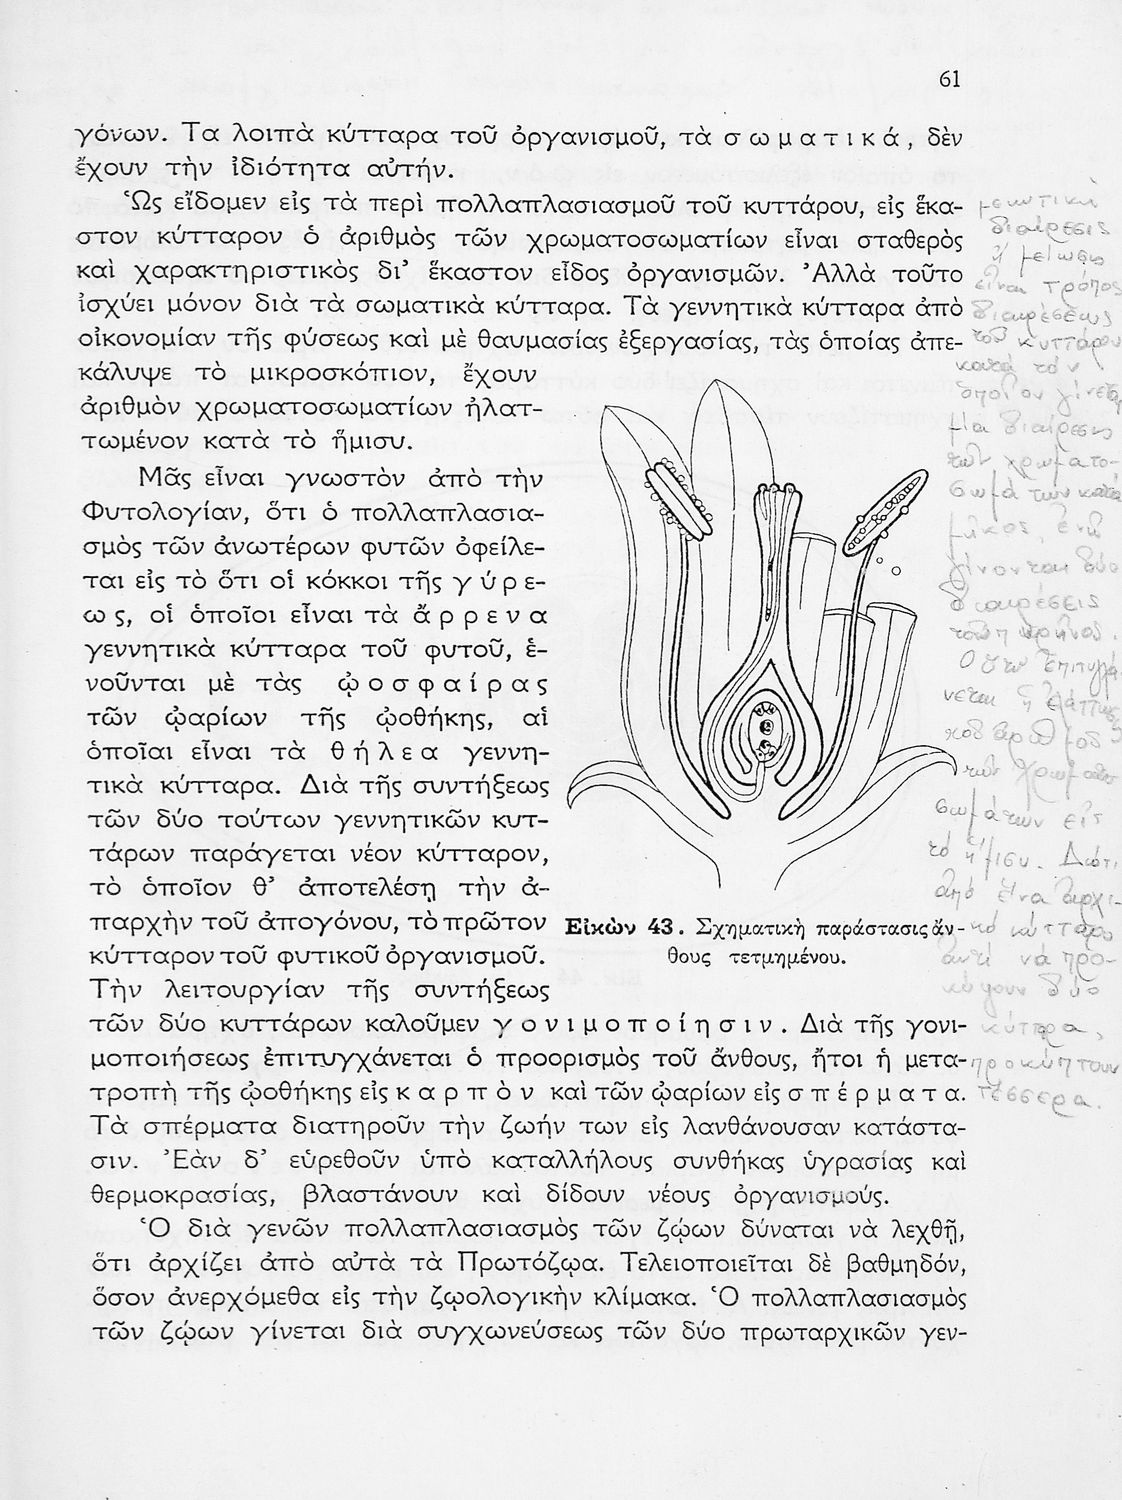 61
γόνων. Τα λοιπὰ κύτταρα τοῦ ὀργανισμοῦ, τὰ σωματικά, δὲν
ἔχουν τὴν ἰδιότητα αὐτήν.
Ὡς εἴδομεν εἰς τὰ περὶ πολλαπλασιασμοῦ τοῦ κυττάρου, εἰς ἕκα-
στον κύτταρον ὁ ἀριθμὸς τῶν χρωματοσωματίων εἶναι σταθερὸς
καὶ χαρακτηριστικὸς δι’ ἕκαστον εἶδος ὀργανισμῶν. Ἀλλὰ τοῦτο
ἰσχύει μόνον διὰ τὰ σωματικὰ κύτταρα. Τὰ γεννητικὰ κύτταρα ἀπὸ
οἰκονομίαν τῆς φύσεως καὶ μὲ θαυμασίας ἐξεργασίας, τὰς ὁποίας ἀπε-
κάλυψε τὸ μικροσκόπιον, ἔχουν
ἀριθμὸν χρωματοσωματίων ἠλατ-
τωμένον κατὰ τὸ ἥμισυ.
Μᾶς εἶναι γνωστὸν ἀπὸ τὴν
Φυτολογίαν, ὅτι ὁ πολλαπλασια-
σμὸς τῶν ἀνωτέρων φυτῶν ὀφείλε-
ται εἰς τὸ ὅτι οἱ κόκκοι τῆς γύρε-
ως, οἱ ὁποῖοι εἶναι τὰ ἄρρενα
γεννητικὰ κύτταρα τοῦ φυτοῦ, ἑ-
νοῦνται μὲ τὰς ᾠοσφαίρας
τῶν ᾠαρίων τῆς ᾠοθήκης, αἱ
ὁποῖαι εἶναι τὰ θήλεα γεννη-
τικὰ κύτταρα. Διὰ τῆς συντήξεως
τῶν δύο τούτων γεννητικῶν κυτ-
τάρων παράγεται νέον κύτταρον,
τὸ ὁποῖον θ’ ἀποτελέσῃ τὴν ἀ-
παρχὴν τοῦ ἀπογόνου, τὸ πρῶτον
κύτταρον τοῦ φυτικοῦ ὀργανισμοῦ.
Τὴν λειτουργίαν τῆς συντήξεως
τῶν δύο κυττάρων καλοῦμεν γονιμοποίησιν. Διὰ τῆς γονι-
μοποιήσεως ἐπιτυγχάνεται ὁ προορισμὸς τοῦ ἄνθους, ἤτοι ἡ μετα-
τροπὴ τῆς ᾠοθήκης εἰς καρπὸν καὶ τῶν ᾠαρίων εἰς σπέρματα.
Τὰ σπέρματα διατηροῦν τὴν ζωήν των εἰς λανθάνουσαν κατάστα-
σιν. Ἐὰν δ’ εὑρεθοῦν ὑπὸ καταλλήλους συνθήκας ὑγρασίας καὶ
θερμοκρασίας, βλαστάνουν καὶ δίδουν νέους ὀργανισμούς.
Ὁ διὰ γενῶν πολλαπλασιασμὸς τῶν ζῴων δύναται νὰ λεχθῇ,
ὅτι ἀρχίζει ἀπὸ αὐτὰ τὰ Πρωτόζῳα. Τελειοποιεῖται δὲ βαθμηδόν,
ὅσον ἀνερχόμεθα εἰς τὴν ζῳολογικὴν κλίμακα. Ὁ πολλαπλασιασμὸς
τῶν ζῴων γίνεται διὰ συγχωνεύσεως τῶν δύο πρωταρχικῶν γεν-
Εἰκὼν 43. Σχηματικὴ παράστασις ἄν-
θους τετμημένου.
μειωτική
διαίρεσις
ἢ μείωσις
εἶναι τρόπος
διαιρέσεως
τοῦ κυττάρου
κατά τόν
ὁποῖον γίνεται
μία διαίρεσις
τῶν χρωματο-
σωμάτων κατά
μῆκος, ἐνῶ
γίνονται δύο
διαιρέσεις
τοῦ πυρῆνος.
Οὕτω ἐπιτυγχά-
νεται ἡ
τοῦ ἀριθμοῦ
τῶν χρωματο-
σωμάτων εἰς
τό ἥμισυ. Διότι
ἀπό ἕνα ἀρχι-
κό κύτταρο
ἀντί νά προ-
κύψουν δύο
κύτταρα,
προκύπτουν
τέσσερα.